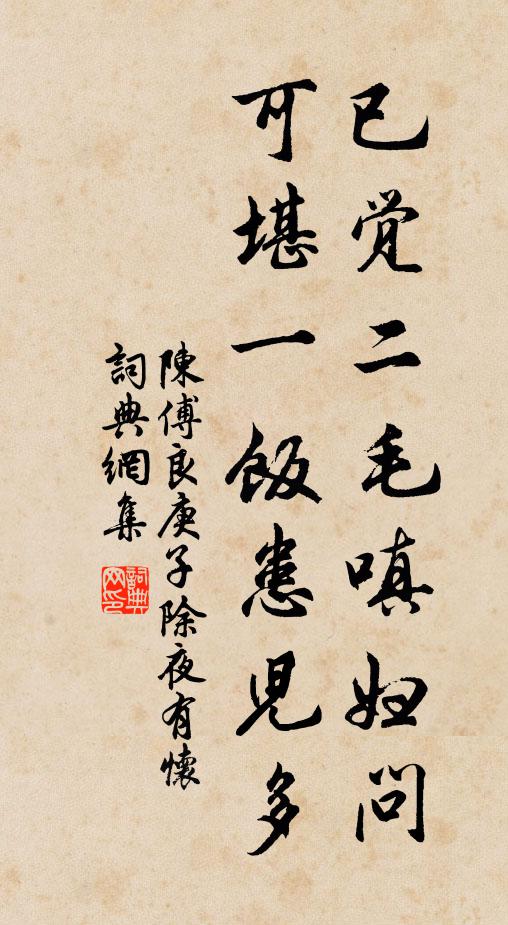 已觉二毛嗔妇问
可堪一飯患児多
陳傅良庚子除夜有懷
詞典網集
詞典网印